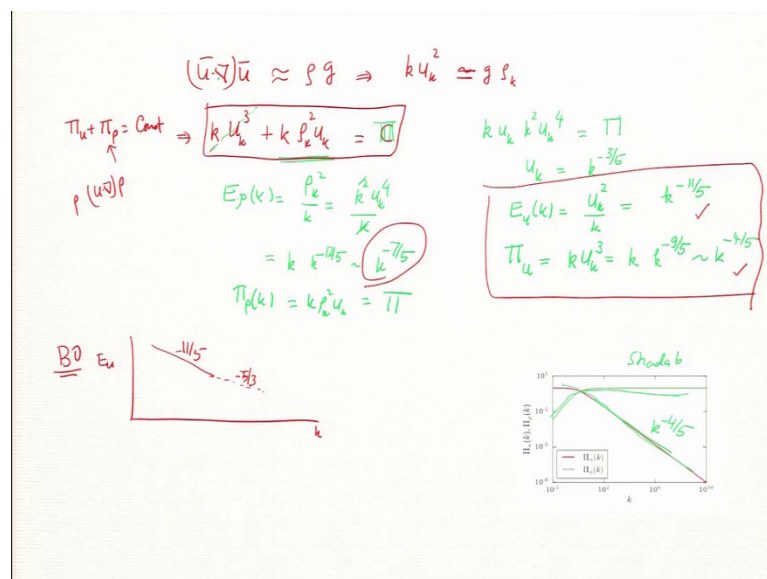 (ū·∇)ū ≈ ρ g ⇒ k u_k² ≃ g ρ_k
Π_u + Π_ρ = Const ⇒ k u_k³ + k ρ_k² u_k = Π
ρ (u·∇)ρ
E_ρ(k) = ρ_k²/k = k² u_k⁴/k
= k k^{-12/5} ~ k^{-7/5}
Π_ρ(k) = k ρ_k² u_k = Π
k u_k k² u_k⁴ = Π
u_k = k^{-3/5}
E_u(k) = u_k²/k = k^{-11/5} ✓
Π_u = k u_k³ = k k^{-9/5} ~ k^{-4/5} ✓
BO E_u
-11/5
-5/3
k
Shadab
Π_u(k), Π_ρ(k)
k^{-4/5}
Π_u(k)
Π_ρ(k)
k